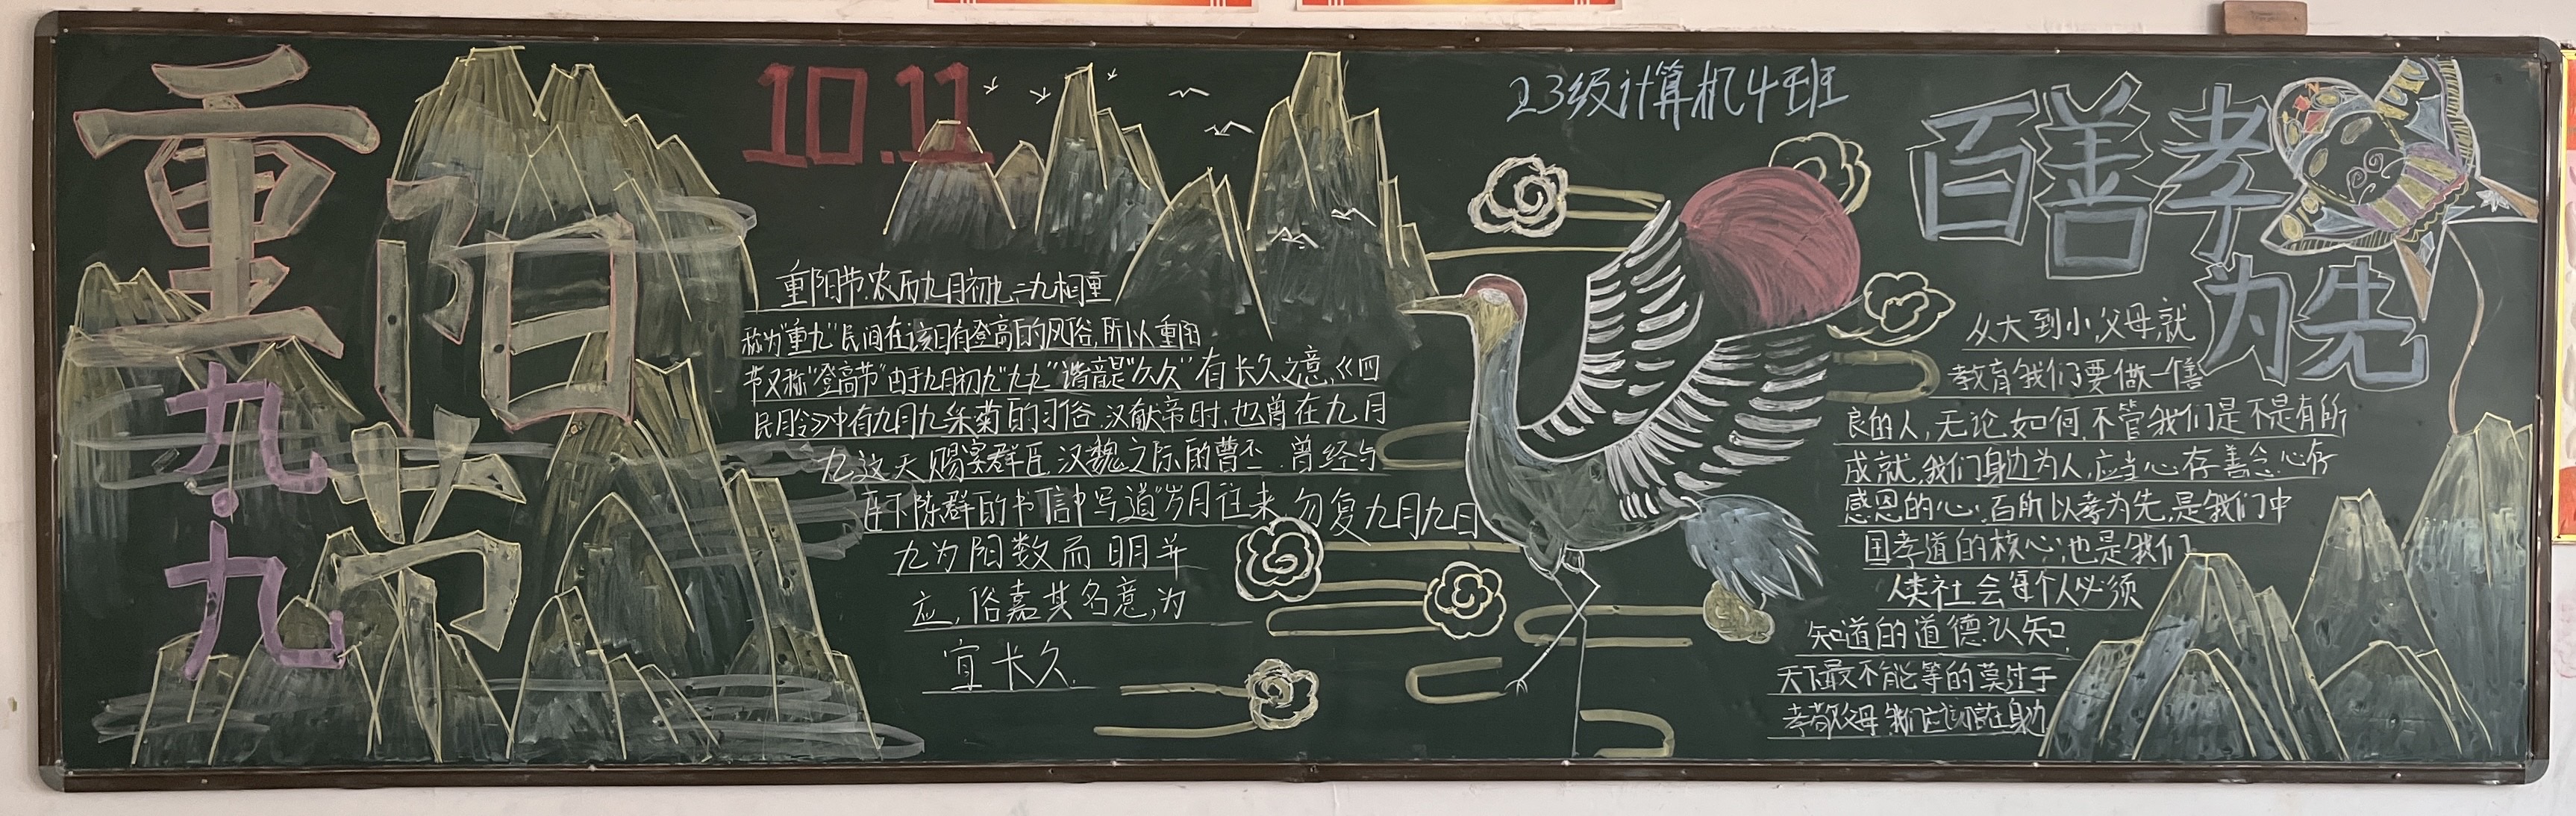 重阳节
九·九
10.11
重阳节.农历九月初九,二九相重
称为"重九"民间在该日有登高的风俗,所以重阳
节又称"登高节"由于九月初九"九九"谐音是"久久"有长久之意,《四
民月令》中有九月九采菊的习俗.汉献帝时,也曾在九月
九这天赐宴群臣,汉魏之际的曹丕.曾经与
臣下陈群的书信中写道"岁月往来,勿复九月九日
九为阳数而日月并
应,俗嘉其名意,为
宜长久.
23级计算机4班
百善孝
为先
从大到小,父母就
教育我们要做一个善
良的人,无论如何,不管我们是不是有所
成就,我们身边为人,应当心存善念,心存
感恩的心;百所以孝为先,是我们中
国孝道的核心;也是我们
人类社会每个人必须
知道的道德认知.
天下最不能等的莫过于
孝敬父母,我们应该就在身边